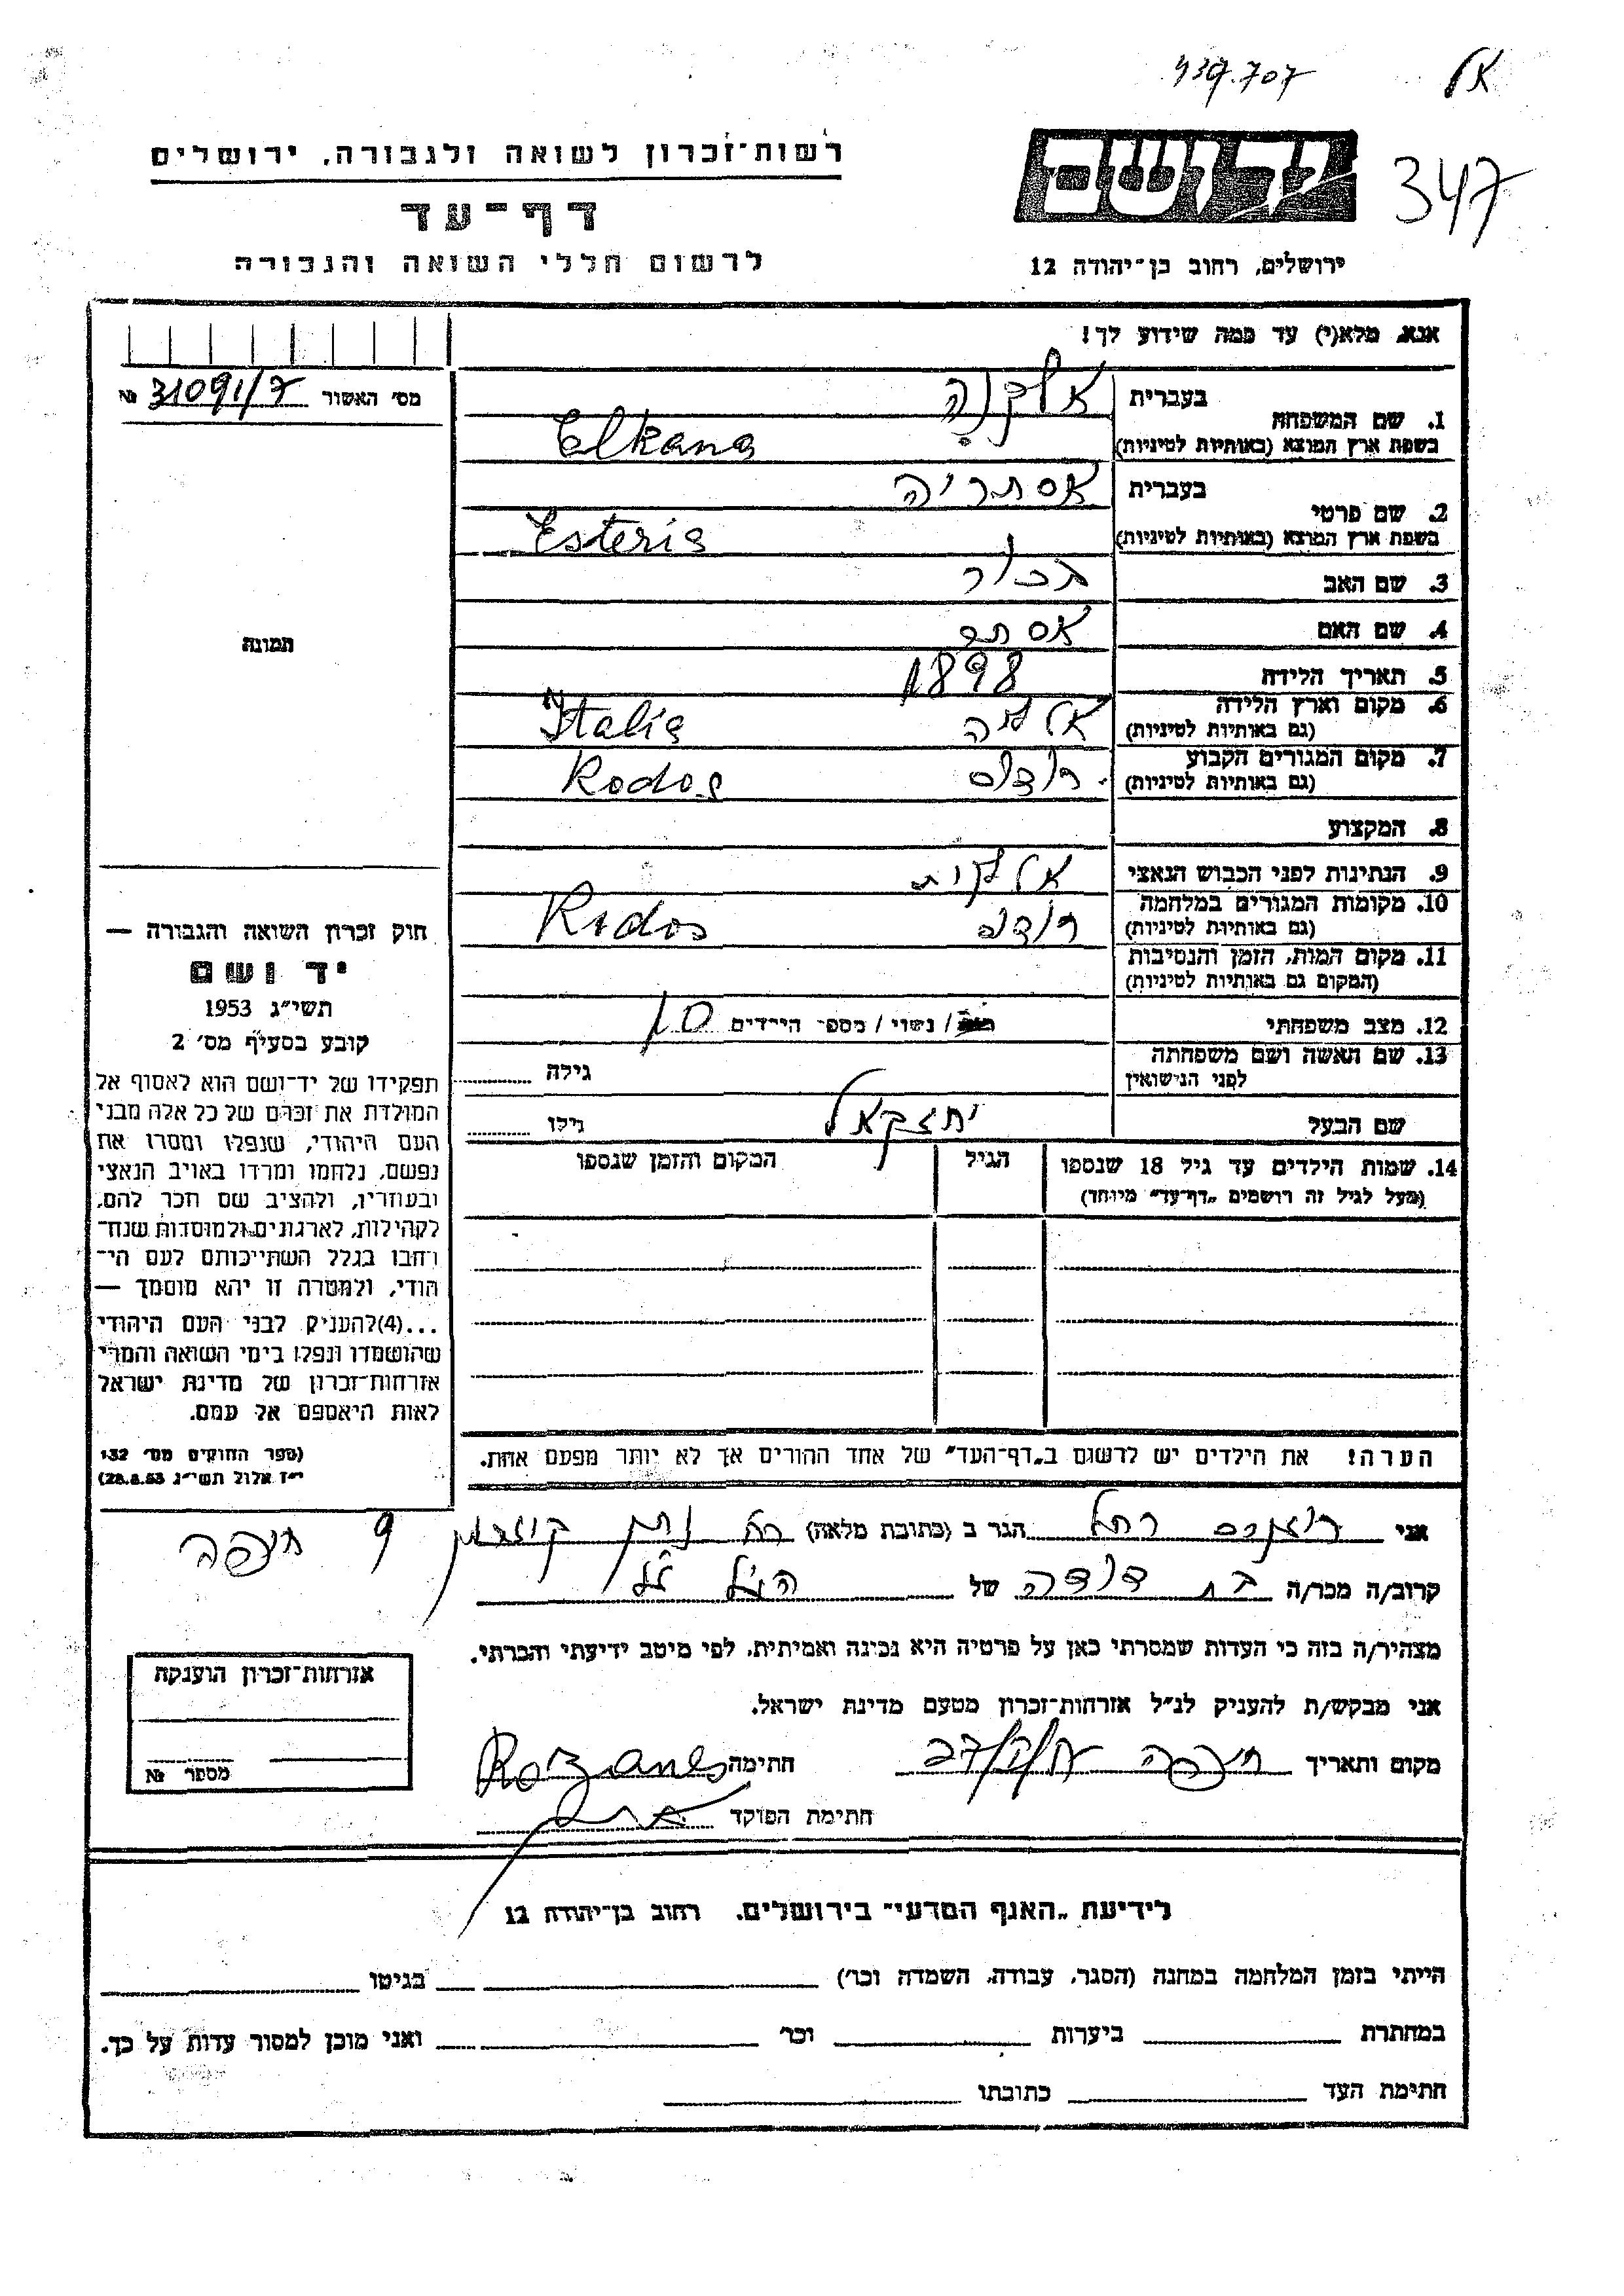 437.707
אל
347
יד ושם
ירושלים, רחוב בן־יהודה 12
רשות־זכרון לשואה ולגבורה, ירושלים
דף־עד
לרשום חללי השואה והגבורה
אנא, מלא(י) עד כמה שידוע לך!
מס׳ האשור 31091/7 №
1. שם המשפחה
בעברית אלקנה
בשפת ארץ המוצא (באותיות לטיניות) Elkana
2. שם פרטי
בעברית אסתריה
בשפת ארץ המוצא (באותיות לטיניות) Esteria
3. שם האב בכור
4. שם האם אסתר
5. תאריך הלידה 1898
6. מקום וארץ הלידה
(גם באותיות לטיניות) Italia
7. מקום המגורים הקבוע
(גם באותיות לטיניות) רודוס Rodos
8. המקצוע
9. הנתינות לפני הכבוש הנאצי
10. מקומות המגורים במלחמה
(גם באותיות לטיניות) רודוס Rodos
11. מקום המות, הזמן והנסיבות
(המקום גם באותיות לטיניות)
12. מצב משפחתי
/ נשוי / מספר הילדים
13. שם האשה ושם משפחתה
לפני הנישואין
גילה
שם הבעל יחזקאל
גילו
14. שמות הילדים עד גיל 18 שנספו
(מעל לגיל זה רושמים „דף־עד״ מיוחד)
הגיל
המקום והזמן שנספו
הערה! את הילדים יש לרשום ב„דף־העד״ של אחד ההורים אך לא יותר מפעם אחת.
תמונה
חוק זכרון השואה והגבורה —
יד ושם
תשי״ג 1953
קובע בסעיף מס׳ 2
תפקידו של יד־ושם הוא לאסוף אל
המולדת את זכרם של כל אלה מבני
העם היהודי, שנפלו ומסרו את
נפשם, נלחמו ומרדו באויב הנאצי
ובעוזריו, ולהציב שם וזכר להם,
לקהילות, לארגונים ולמוסדות שנח־
רבו בגלל השתייכותם לעם הי־
הודי, ולמטרה זו יהא מוסמך —
...(4)להעניק לבני העם היהודי
שהושמדו ונפלו בימי השואה והמרי
אזרחות־זכרון של מדינת ישראל
לאות היאספם אל עמם.
(ספר החוקים מס׳ 132
י״ז אלול תשי״ג 28.8.53)
אני רוזנס רחל הגר ב (כתובת מלאה) 9 חיפה
קרוב/ה מכר/ה בת דודה של הנ״ל
מצהיר/ה בזה כי העדות שמסרתי כאן על פרטיה היא נכונה ואמיתית, לפי מיטב ידיעתי והכרתי.
אני מבקש/ת להעניק לנ״ל אזרחות־זכרון מטעם מדינת ישראל.
מקום ותאריך חיפה חתימה Rozanes
חתימת הפוקד
אזרחות־זכרון הוענקה
מספר №
לידיעת „האגף המדעי״ בירושלים, רחוב בן־יהודה 12
הייתי בזמן המלחמה במחנה (הסגר, עבודה, השמדה וכו׳) בגיטו
במחתרת ביערות וכו׳ ואני מוכן למסור עדות על כך.
חתימת העד כתובתו